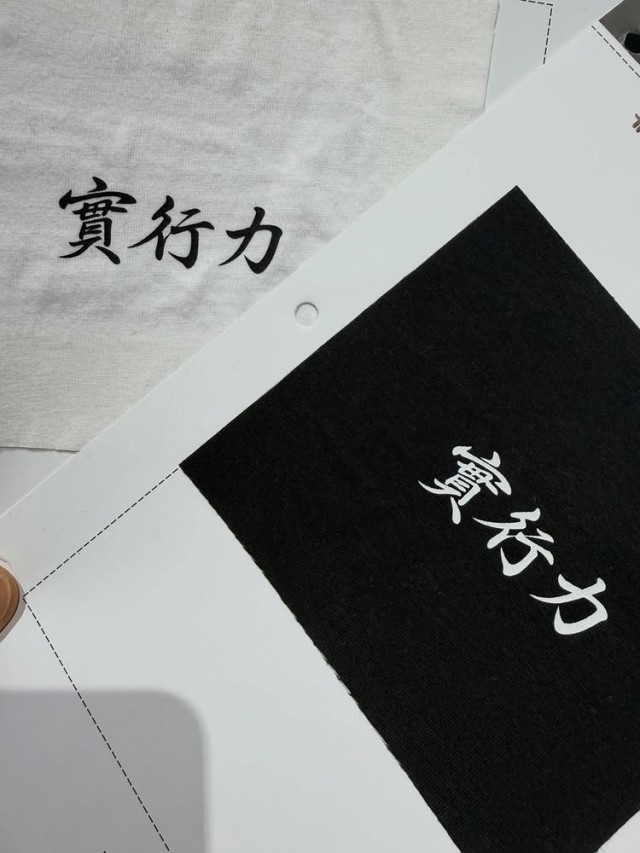 實行力
實行力